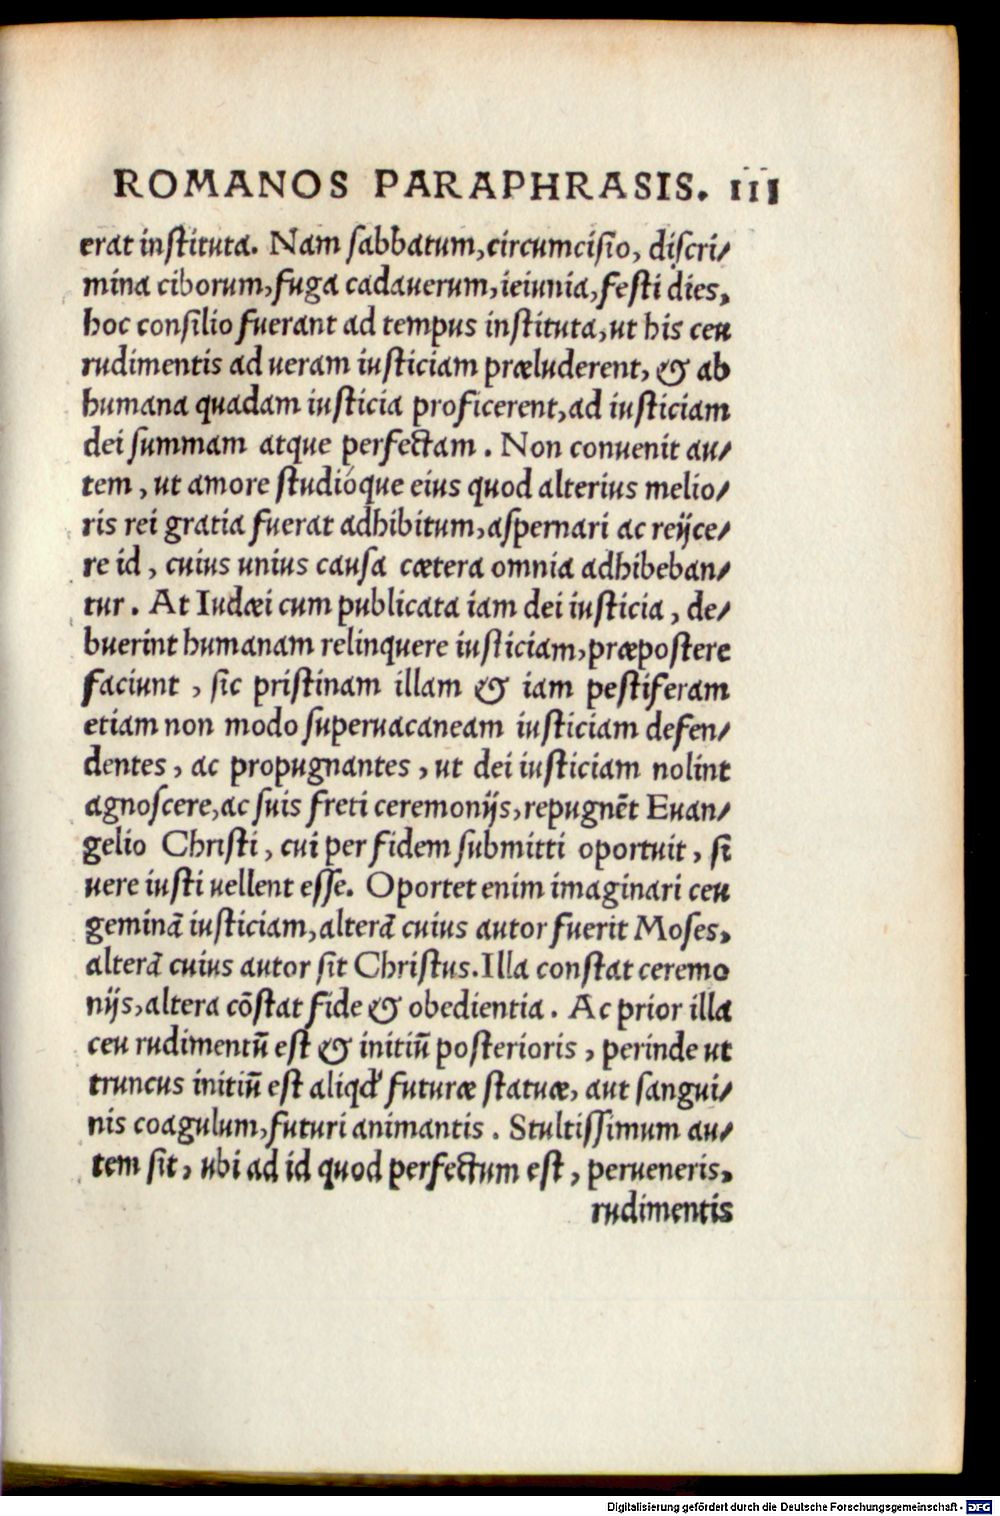 ROMANOS PARAPHRASIS. III
erat instituta. Nam sabbatum, circumcisio, discri/
mina ciborum, fuga cadauerum, ieiunia, festi dies,
hoc consilio fuerant ad tempus instituta, ut his ceu
rudimentis ad ueram iusticiam præluderent, & ab
humana quadam iusticia proficerent, ad iusticiam
dei summam atque perfectam. Non conuenit au/
tem, ut amore studióque eius quod alterius melio/
ris rei gratia fuerat adhibitum, aspernari ac reijce/
re id, cuius unius causa cætera omnia adhibeban/
tur. At Iudæi cum publicata iam dei iusticia, de/
buerint humanam relinquere iusticiam, præpostere
faciunt, sic pristinam illam & iam pestiferam
etiam non modo superuacaneam iusticiam defen/
dentes, ac propugnantes, ut dei iusticiam nolint
agnoscere, ac suis freti ceremonijs, repugnēt Euan/
gelio Christi, cui per fidem submitti oportuit, si
uere iusti uellent esse. Oportet enim imaginari ceu
geminā iusticiam, alterā cuius autor fuerit Moses,
alterā cuius autor sit Christus. Illa constat ceremo
nijs, altera cōstat fide & obedientia. Ac prior illa
ceu rudimentū est & initiū posterioris, perinde ut
truncus initiū est aliqd' futuræ statuæ, aut sangui/
nis coagulum, futuri animantis. Stultissimum au/
tem sit, ubi ad id quod perfectum est, perueneris,
rudimentis
Digitalisierung gefördert durch die Deutsche Forschungsgemeinschaft - DFG